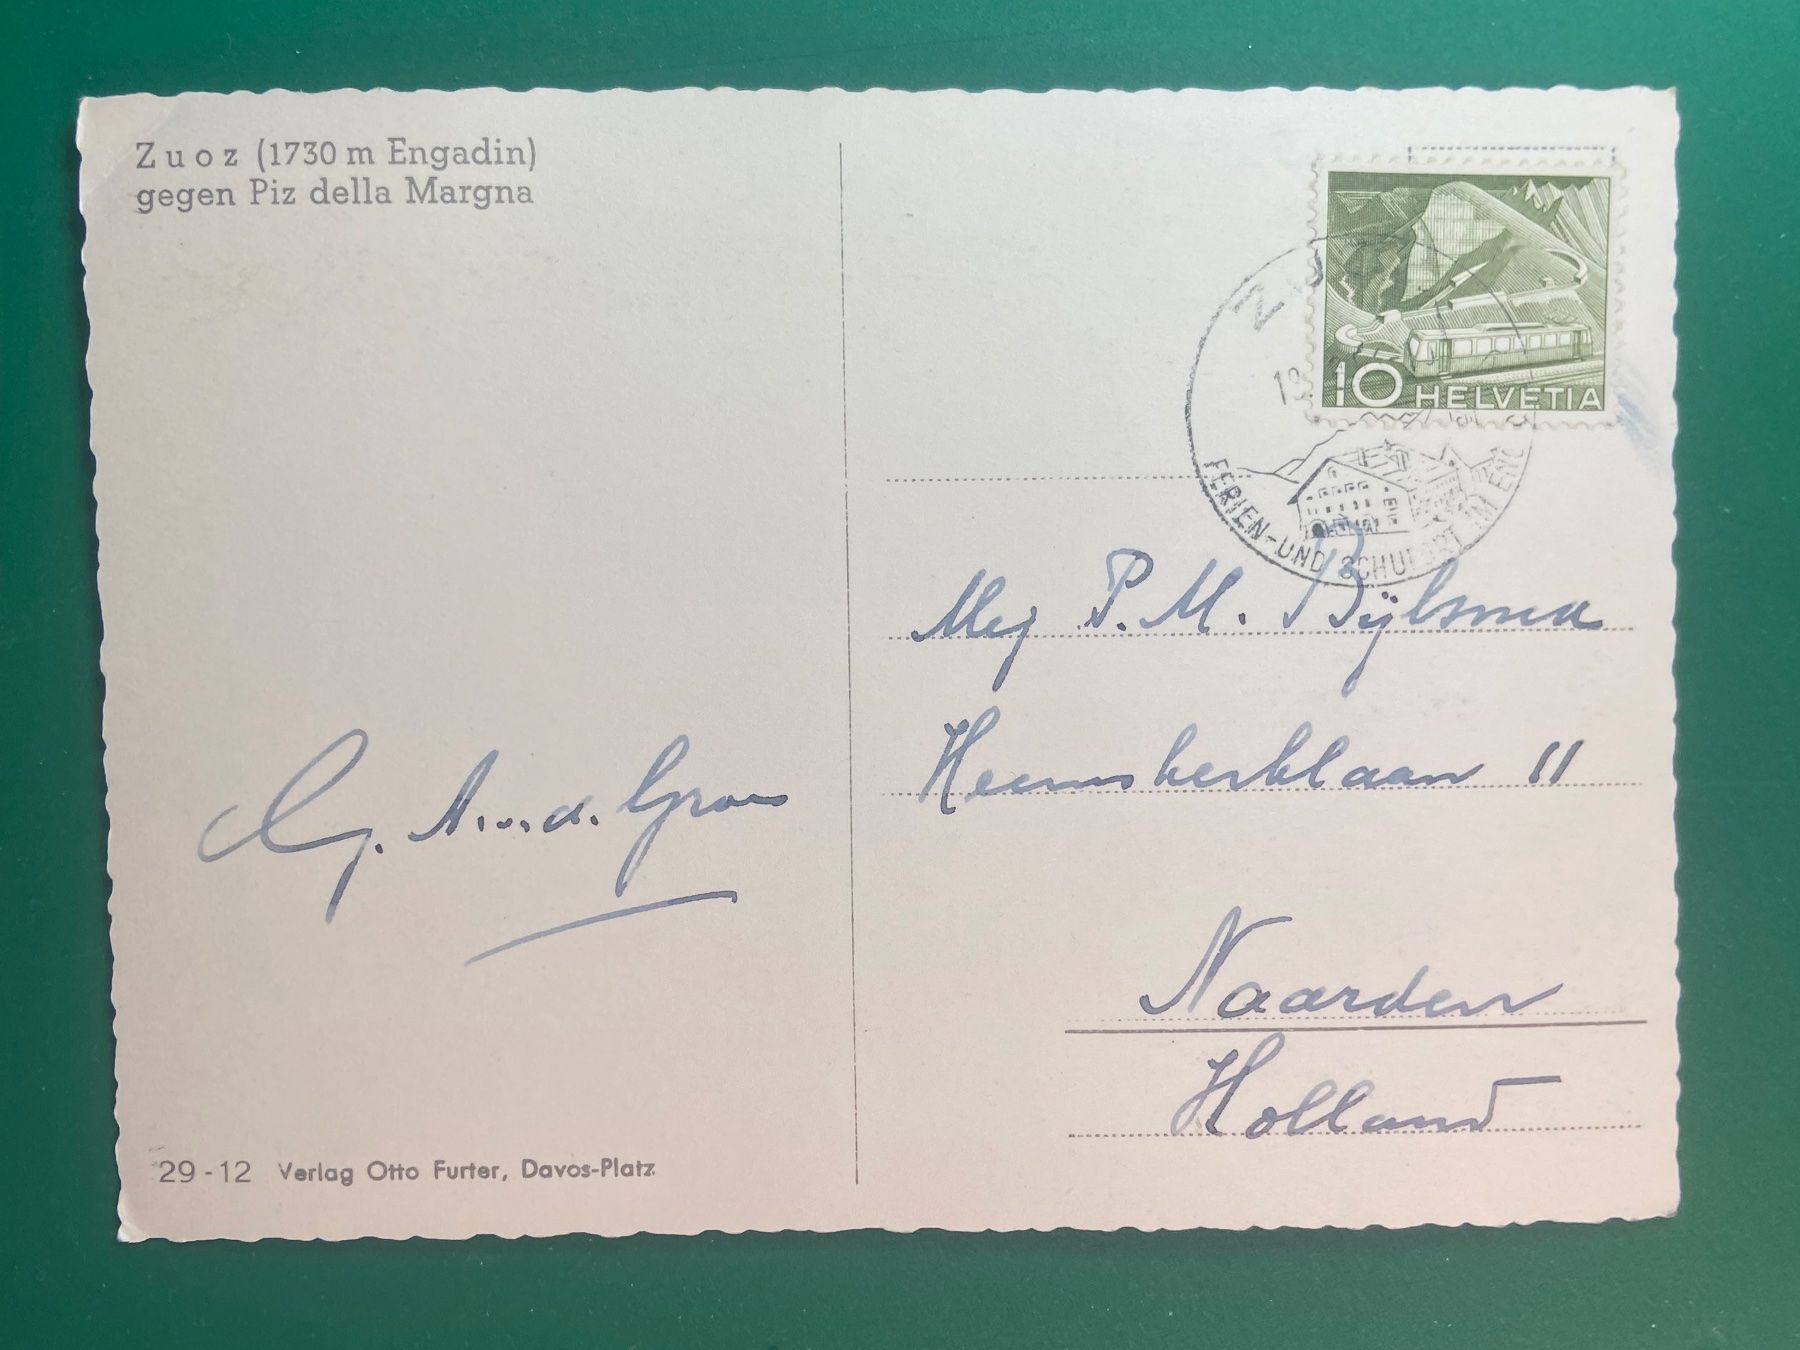 Zuoz (1730 m Engadin)
gegen Piz della Margna
10 HELVETIA
ZUOZ
FERIEN- UND SCHULORT IM ENG
Mej P. M. Bijlsma
Heemskerklaan 11
Naarden
Holland
A. v. d.
29-12 Verlag Otto Furter, Davos-Platz